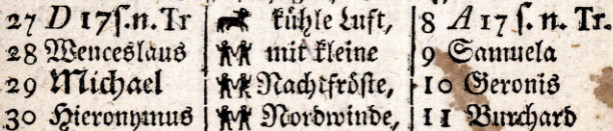 27 D 17ſ.n.Tr kühle Luft, 8 A 17 ſ. n. Tr.
28 Wenceslaus mit kleine 9 Samuela
29 Michael Nachtfröſte, 10 Geronis
30 Hieronymus Nordwinde, 11 Burchard